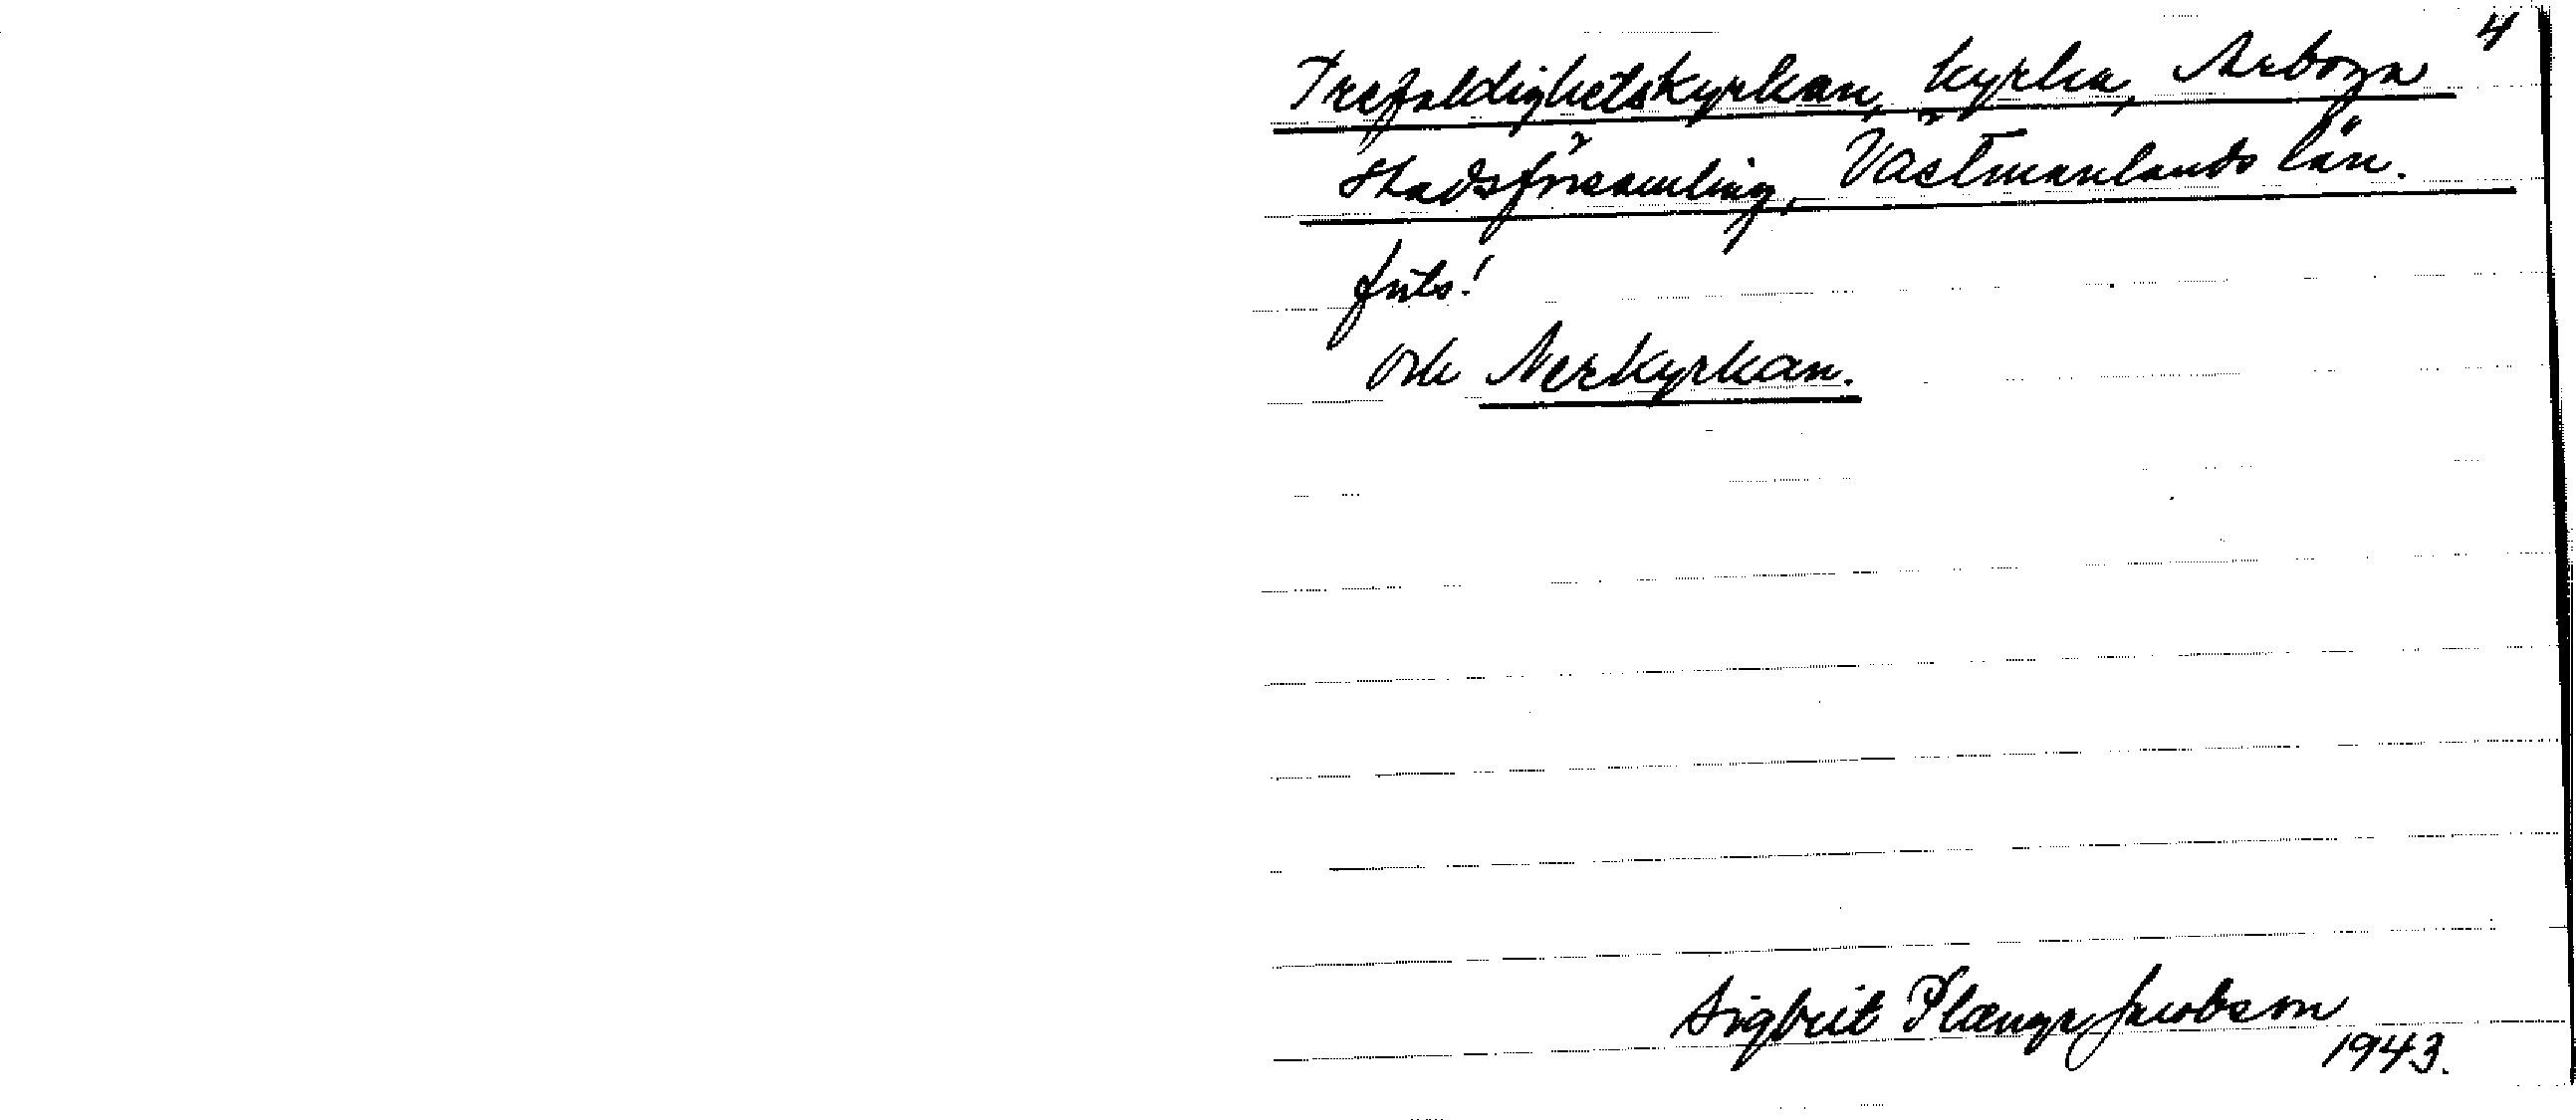 4
Trefaldighetskyrkan, kyrka, Arboga
stadsförsamling, Västmanlands län.
futs!
och Nerkyrkan.
Sigbrit Plænge Jacobson
1943.